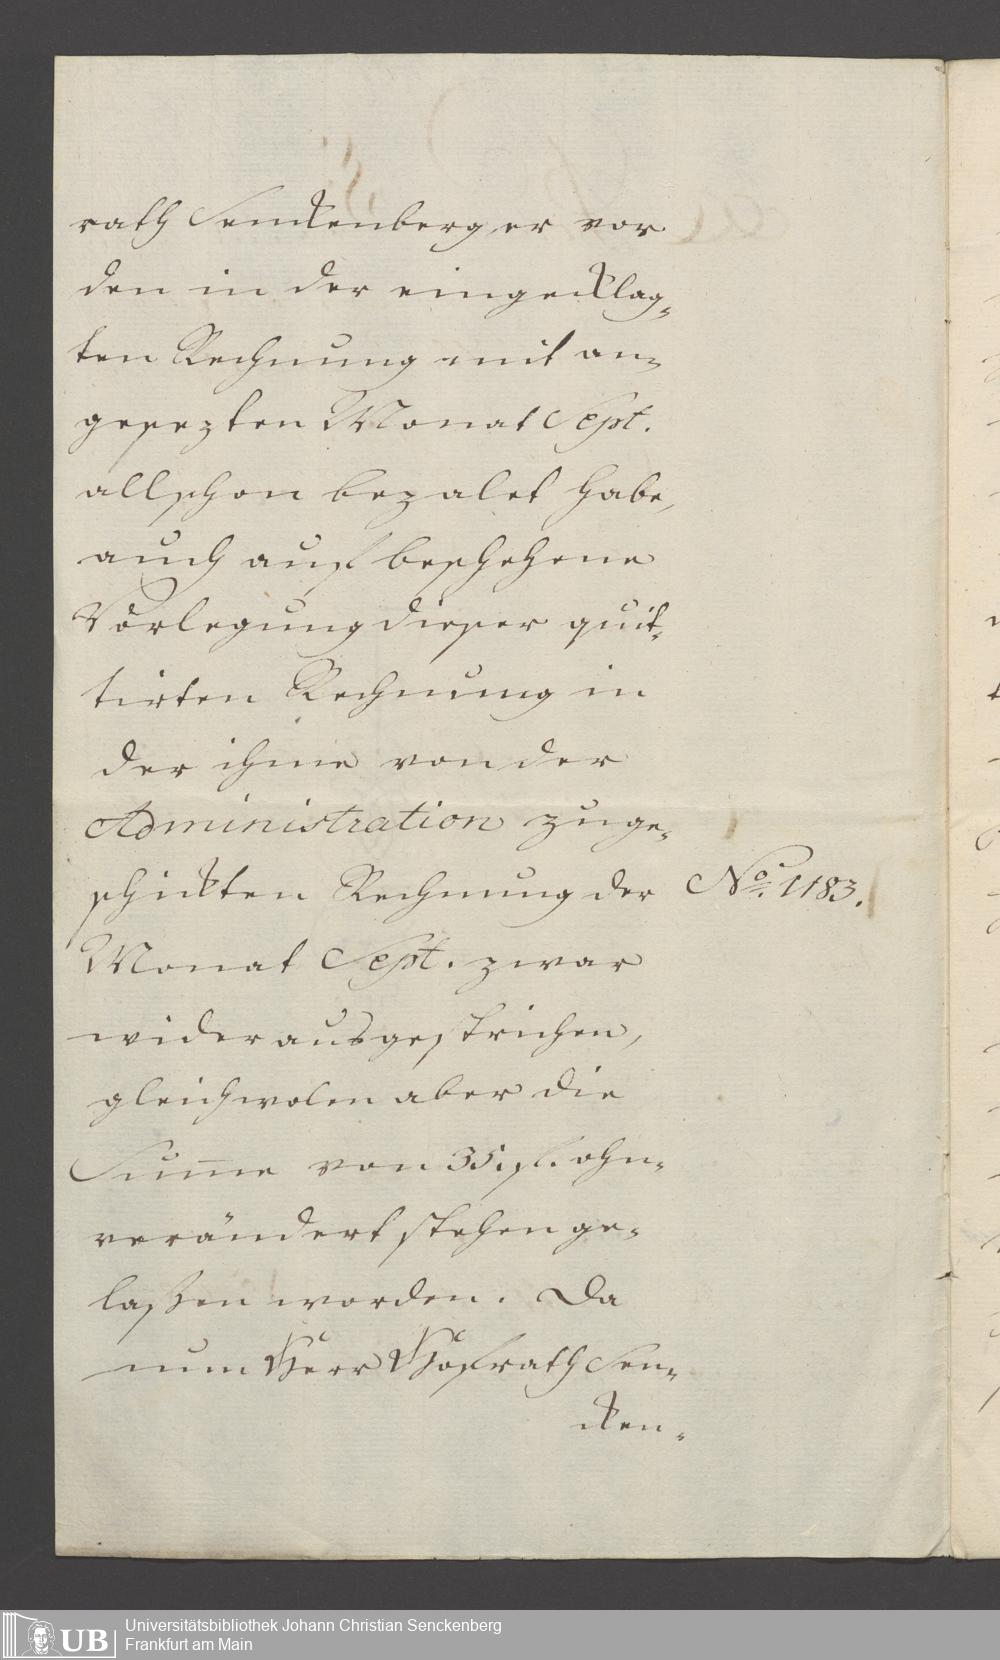 rath Senckenberg, er vor
den in der eingecklag„
ten Rechnung mit an„
gesezten Monat Sept.
allschon bezalet habe,
auch auf beschehene
Vorlegung dieser quit„
tirten Rechnung in
der ihme von der
Administration zuge„
schickten Rechnung der No. 1183.
Monat Sept. zwar
wider ausgestrichen,
gleichwolen aber die
Sum̄e von 35. fl. ohn„
verändert stehen ge„
laßen worden. Da
nun Herr Hofrath Sen„
cken„
UB Universitätsbibliothek Johann Christian Senckenberg
Frankfurt am Main